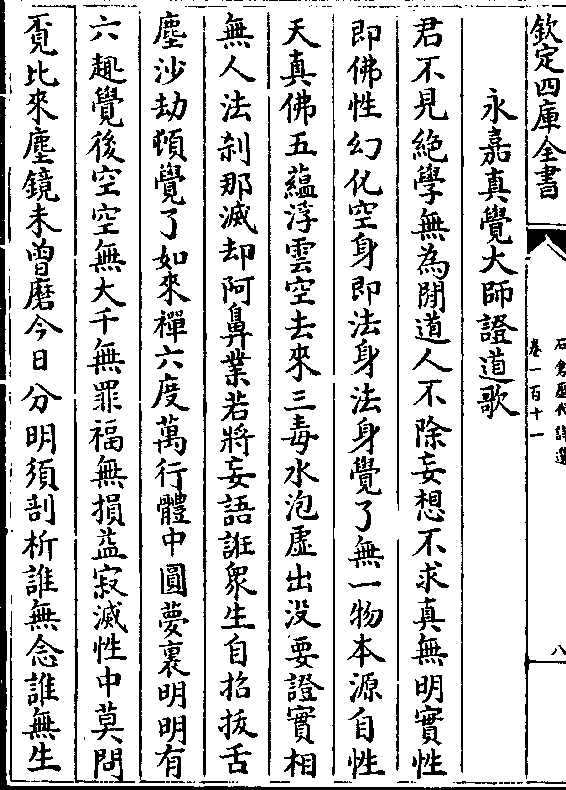 欽定四庫全書
石倉歷代詩選
卷一百十一
八
永嘉真覺大師證道歌
君不見絶學無為閒道人不除妄想不求真無明實性
即佛性幻化空身即法身法身覺了無一物本源自性
天真佛五藴浮雲空去來三毒水泡虛出没要證實相
無人法剎那滅却阿鼻業若將妄語誑衆生自招拔舌
塵沙劫頓覺了如來禪六度萬行體中圓夢裏明明有
六趣覺後空空無大千無罪福無損益寂滅性中莫問
覔比來塵鏡未曾磨今日分明須剖析誰無念誰無生